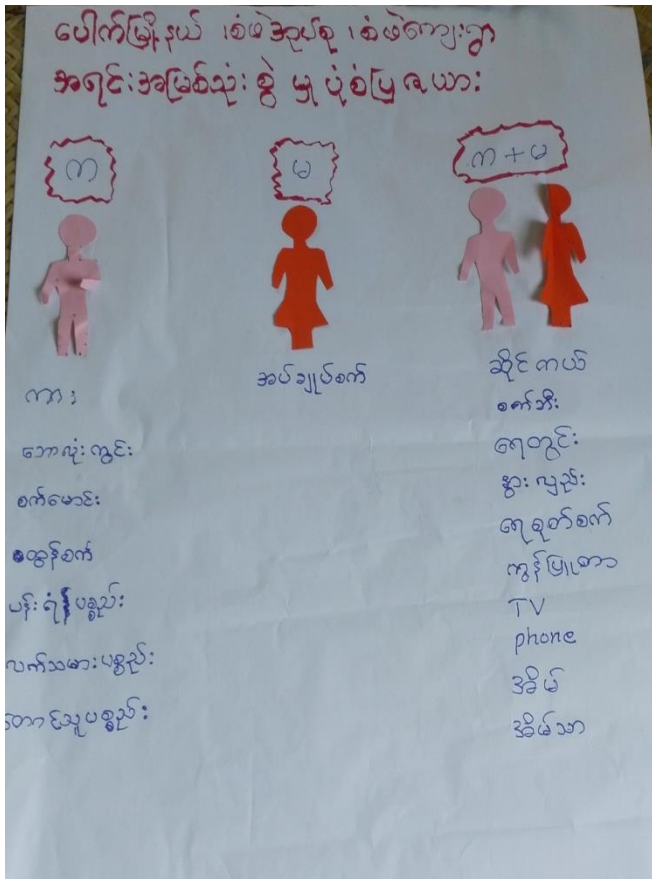 ပေါက်မြို့နယ် ၊စံဖဲအုပ်စု ၊စံဖဲကျေးရွာ
အရင်းအမြစ်သုံးစွဲမှုပုံစံပြဇယား
က
မ
က+မ
ကား
ဘောလုံးကွင်း
စက်မောင်း
ထွန်စက်
ပန်းရံပစ္စည်း
လက်သမားပစ္စည်း
တောင်သူပစ္စည်း
အပ်ချုပ်စက်
ဆိုင်ကယ်
စက်ဘီး
ရေတွင်း
နွားလှည်း
ရေစုတ်စက်
ကွန်ပြူတာ
TV
phone
အိမ်
အိမ်သာ